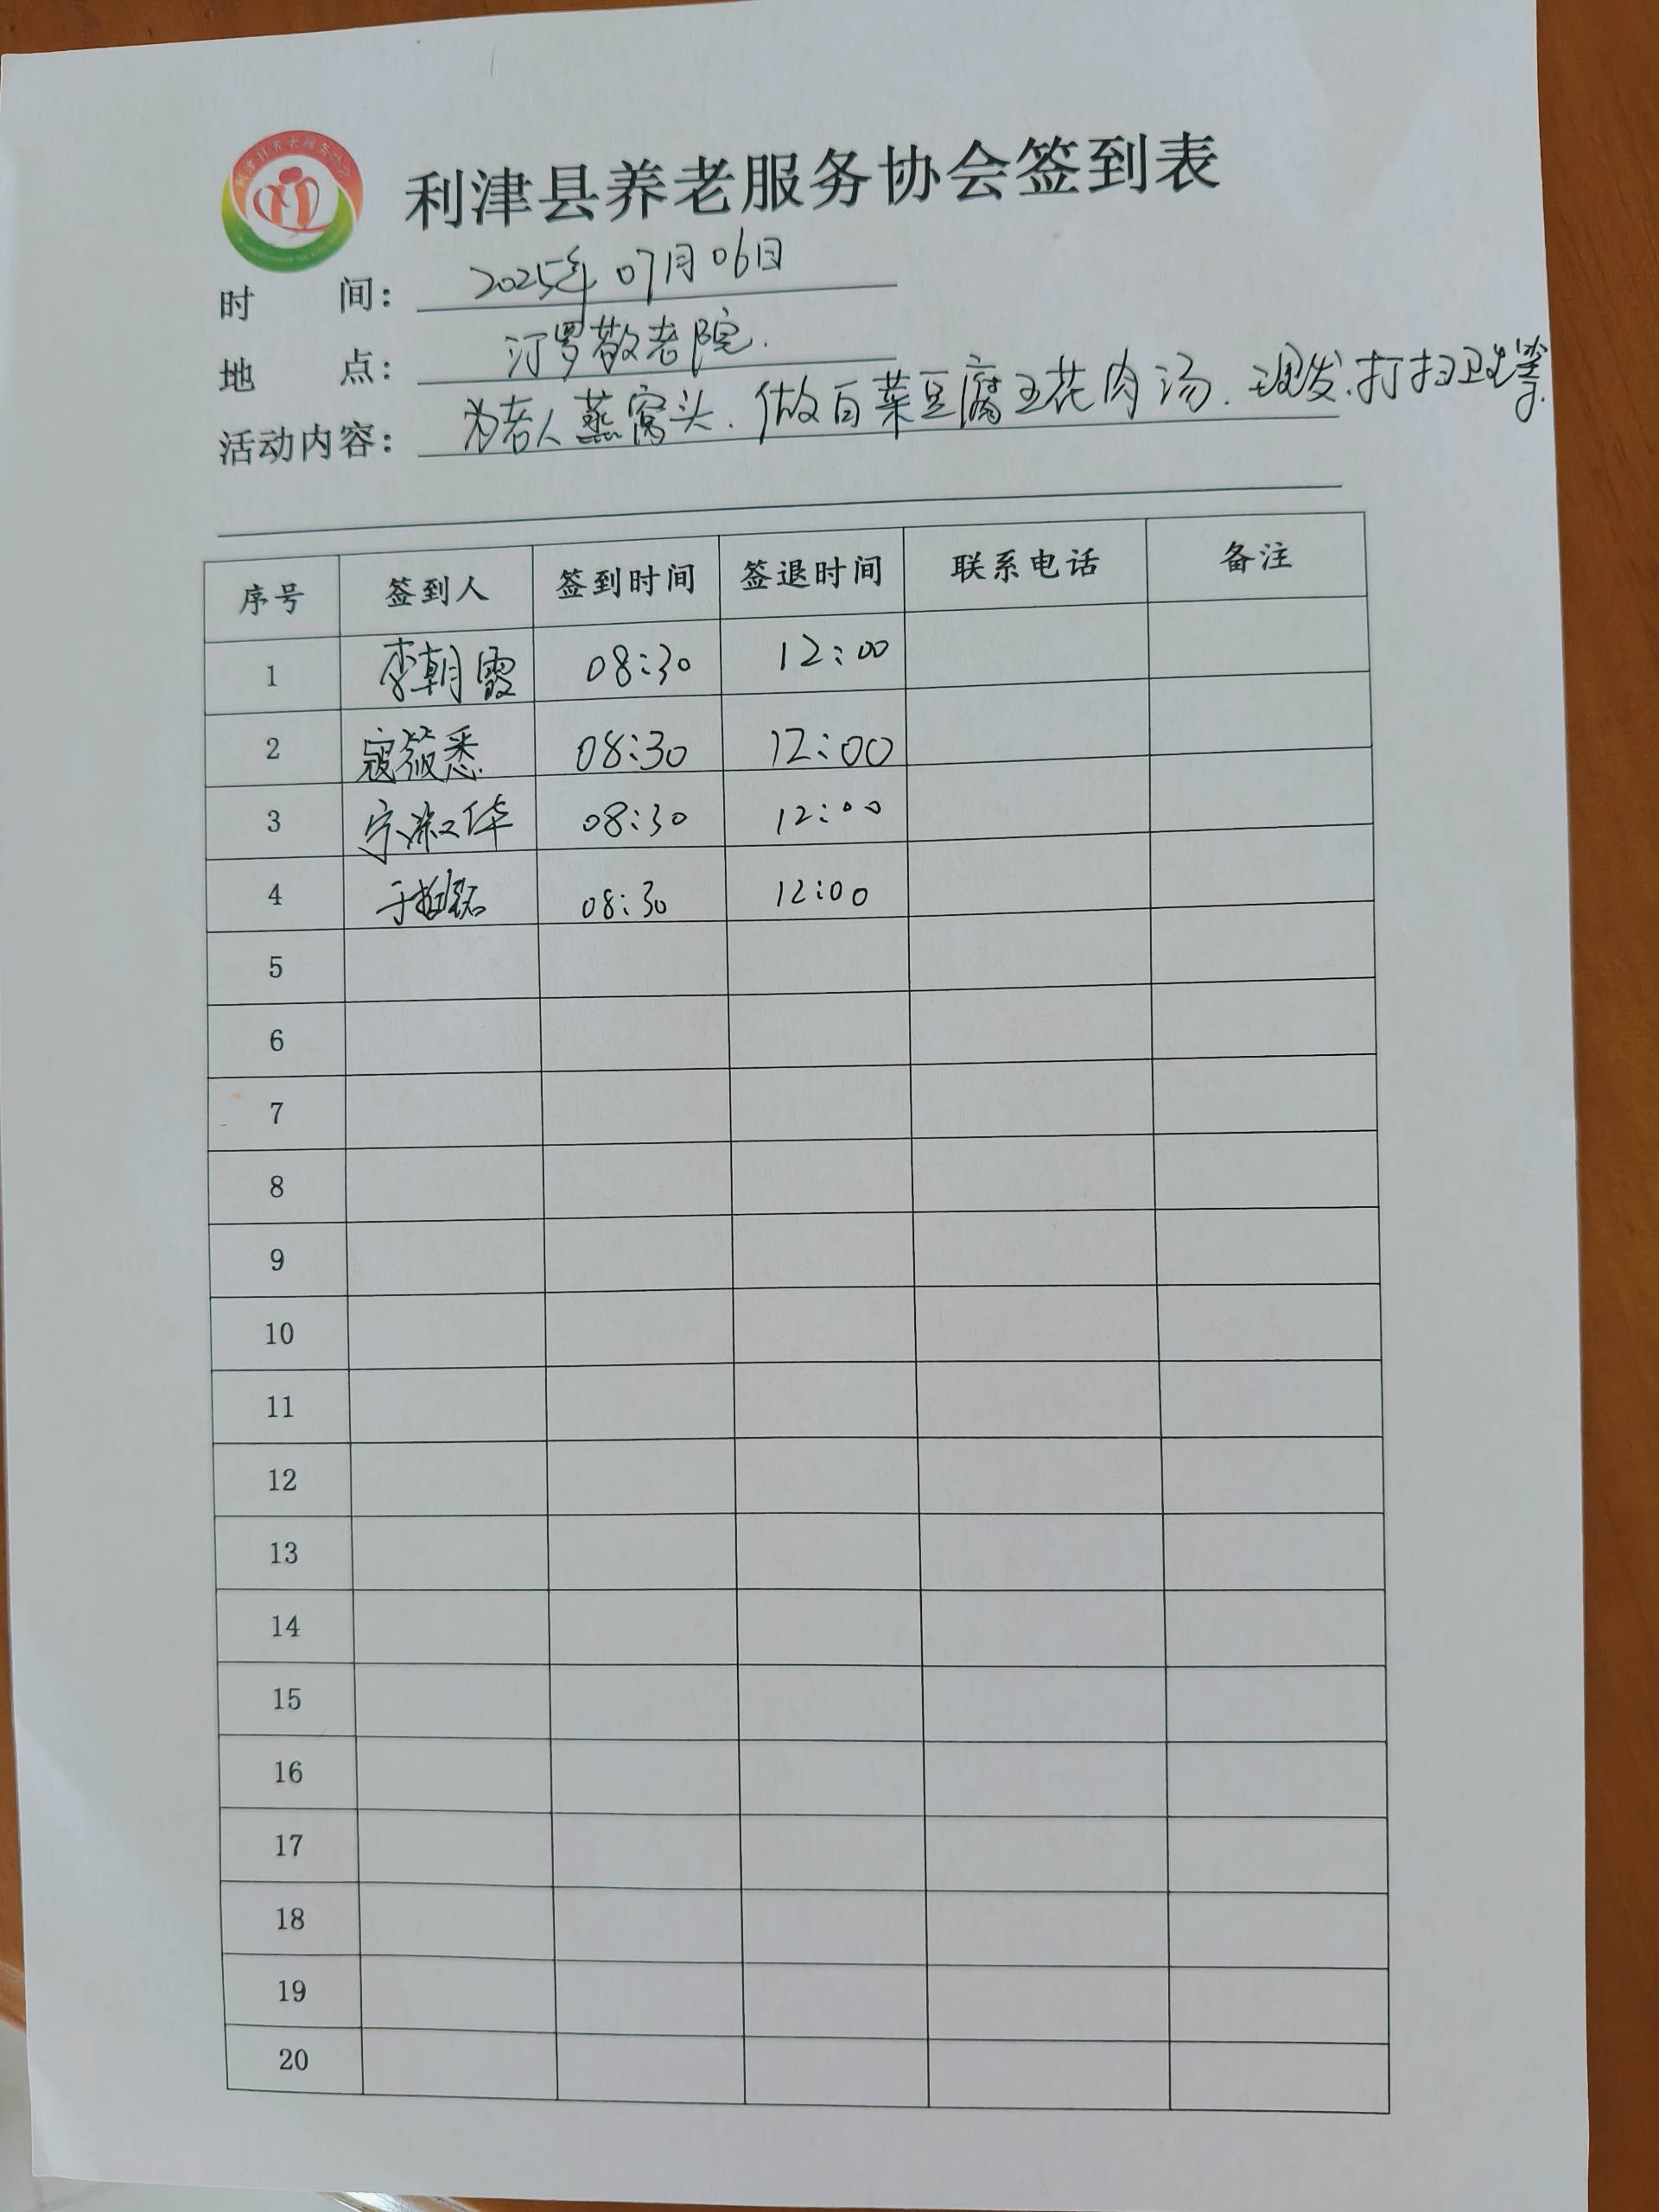 利津县养老服务协会
利津县养老服务协会签到表
时 间： 2025年07月06日
地 点： 汀罗敬老院.
活动内容： 为老人蒸窝头.做白菜豆腐五花肉汤.理发.打扫卫生等.
序号 签到人 签到时间 签退时间 联系电话 备注
1 李朝霞 08:30 12:00
2 寇筱悉 08:30 12:00
3 宁淑华 08:30 12:00
4 08:30 12:00
5
6
7
8
9
10
11
12
13
14
15
16
17
18
19
20